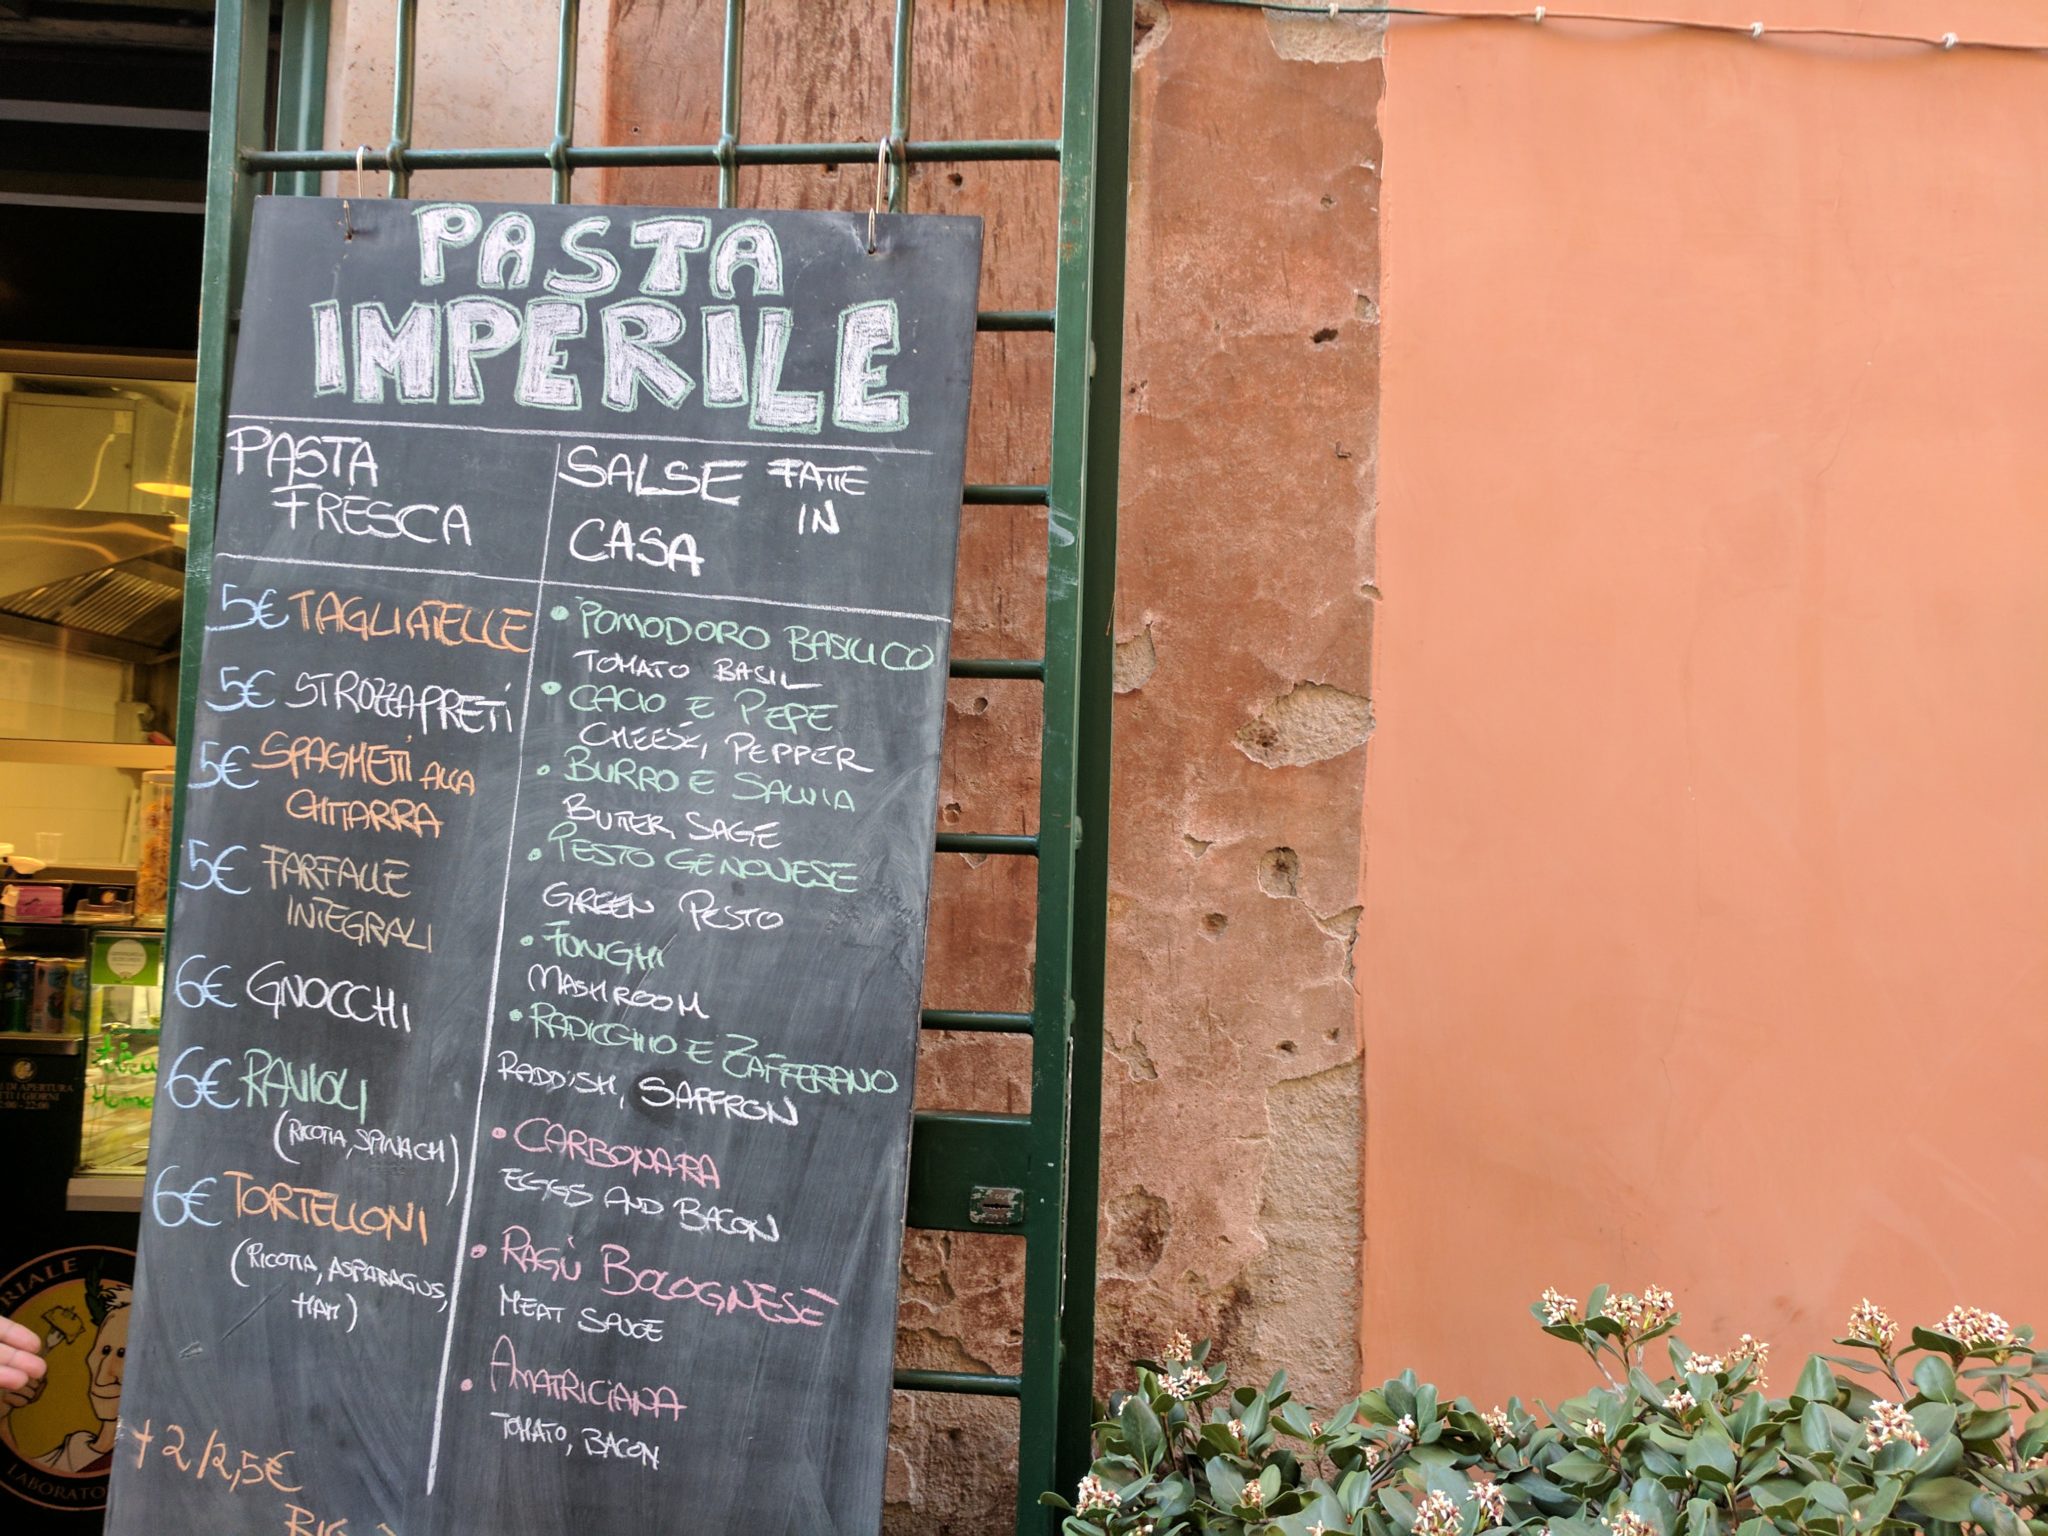 PASTA
IMPERILE
PASTA
FRESCA
SALSE FATTE
IN
CASA
5€ TAGLIATELLE
5€ STROZZAPRETI
5€ SPAGHETTI ALLA
GHITARRA
5€ FARFALLE
INTEGRALI
6€ GNOCCHI
6€ RAVIOLI
(RICOTTA, SPINACH)
6€ TORTELLONI
(RICOTTA, ASPARAGUS,
HAM)
+2/2,5€
• POMODORO BASILICO
TOMATO BASIL
• CACIO E PEPE
CHEESE, PEPPER
• BURRO E SALVIA
BUTTER, SAGE
• PESTO GENOVESE
GREEN PESTO
• FUNGHI
MASHROOM
• RADICCHIO E ZAFFERANO
RADDISH, SAFFRON
• CARBONARA
EGGS AND BACON
• RAGÙ BOLOGNESE
MEAT SAUCE
• AMATRICIANA
TOMATO, BACON
DI APERTURA
I GIORNI
RIALE
LABORATO